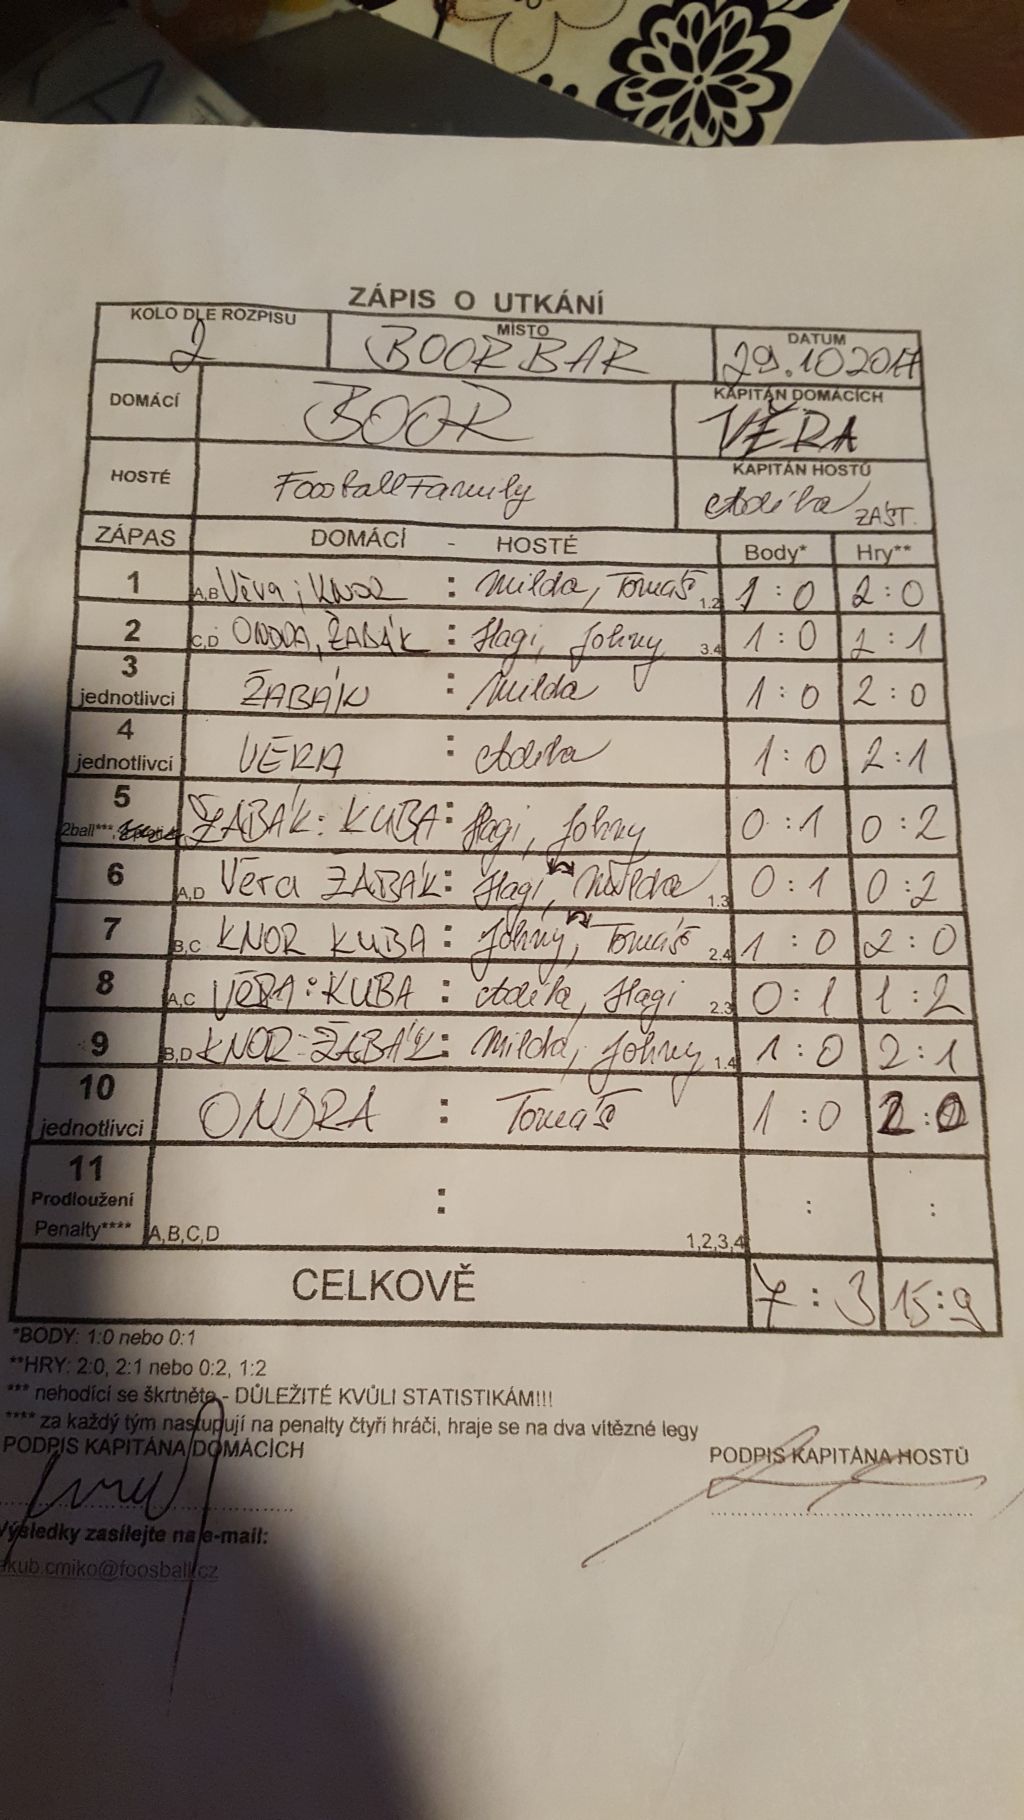 ZÁPIS O UTKÁNÍ
KOLO DLE ROZPISU MÍSTO DATUM
2 BOOR BAR 29.10 2017
DOMÁCÍ BOOR KAPITÁN DOMÁCÍCH
VĚRA
HOSTÉ FoosballFamily KAPITÁN HOSTŮ
Adélka ZAST.
ZÁPAS DOMÁCÍ - HOSTÉ Body* Hry**
1 A,B Věra ; KNOR : Milda, Tomáš 1.2 1 : 0 2 : 0
2 C,D ONDRA, ŽABÁK : Hagi, Johny 3.4 1 : 0 2 : 1
3 jednotlivci ŽABÁK : Milda 1 : 0 2 : 0
4 jednotlivci VĚRA : Adélka 1 : 0 2 : 1
5 2ball***, ŽABÁK : KUBA : Hagi, Johny 0 : 1 0 : 2
6 A,D Věra ŽABÁK : Hagi, Milda 1.3 0 : 1 0 : 2
7 B,C KNOR KUBA : Johny, Tomáš 2.4 1 : 0 2 : 0
8 A,C VĚRA : KUBA : Adélka, Hagi 2.3 0 : 1 1 : 2
9 B,D KNOR : ŽABÁK : Milda, Johny 1.4 1 : 0 2 : 1
10 jednotlivci ONDRA : Tomáš 1 : 0 2 : 0
11 Prodloužení : : :
Penalty**** A,B,C,D 1,2,3,4
CELKOVĚ 7 : 3 15 : 9
*BODY: 1:0 nebo 0:1
**HRY: 2:0, 2:1 nebo 0:2, 1:2
*** nehodící se škrtněte - DŮLEŽITÉ KVŮLI STATISTIKÁM!!!
**** za každý tým nastupují na penalty čtyři hráči, hraje se na dva vítězné legy
PODPIS KAPITÁNA DOMÁCÍCH PODPIS KAPITÁNA HOSTŮ
Výsledky zasílejte na e-mail:
akub.cmiko@foosball.cz